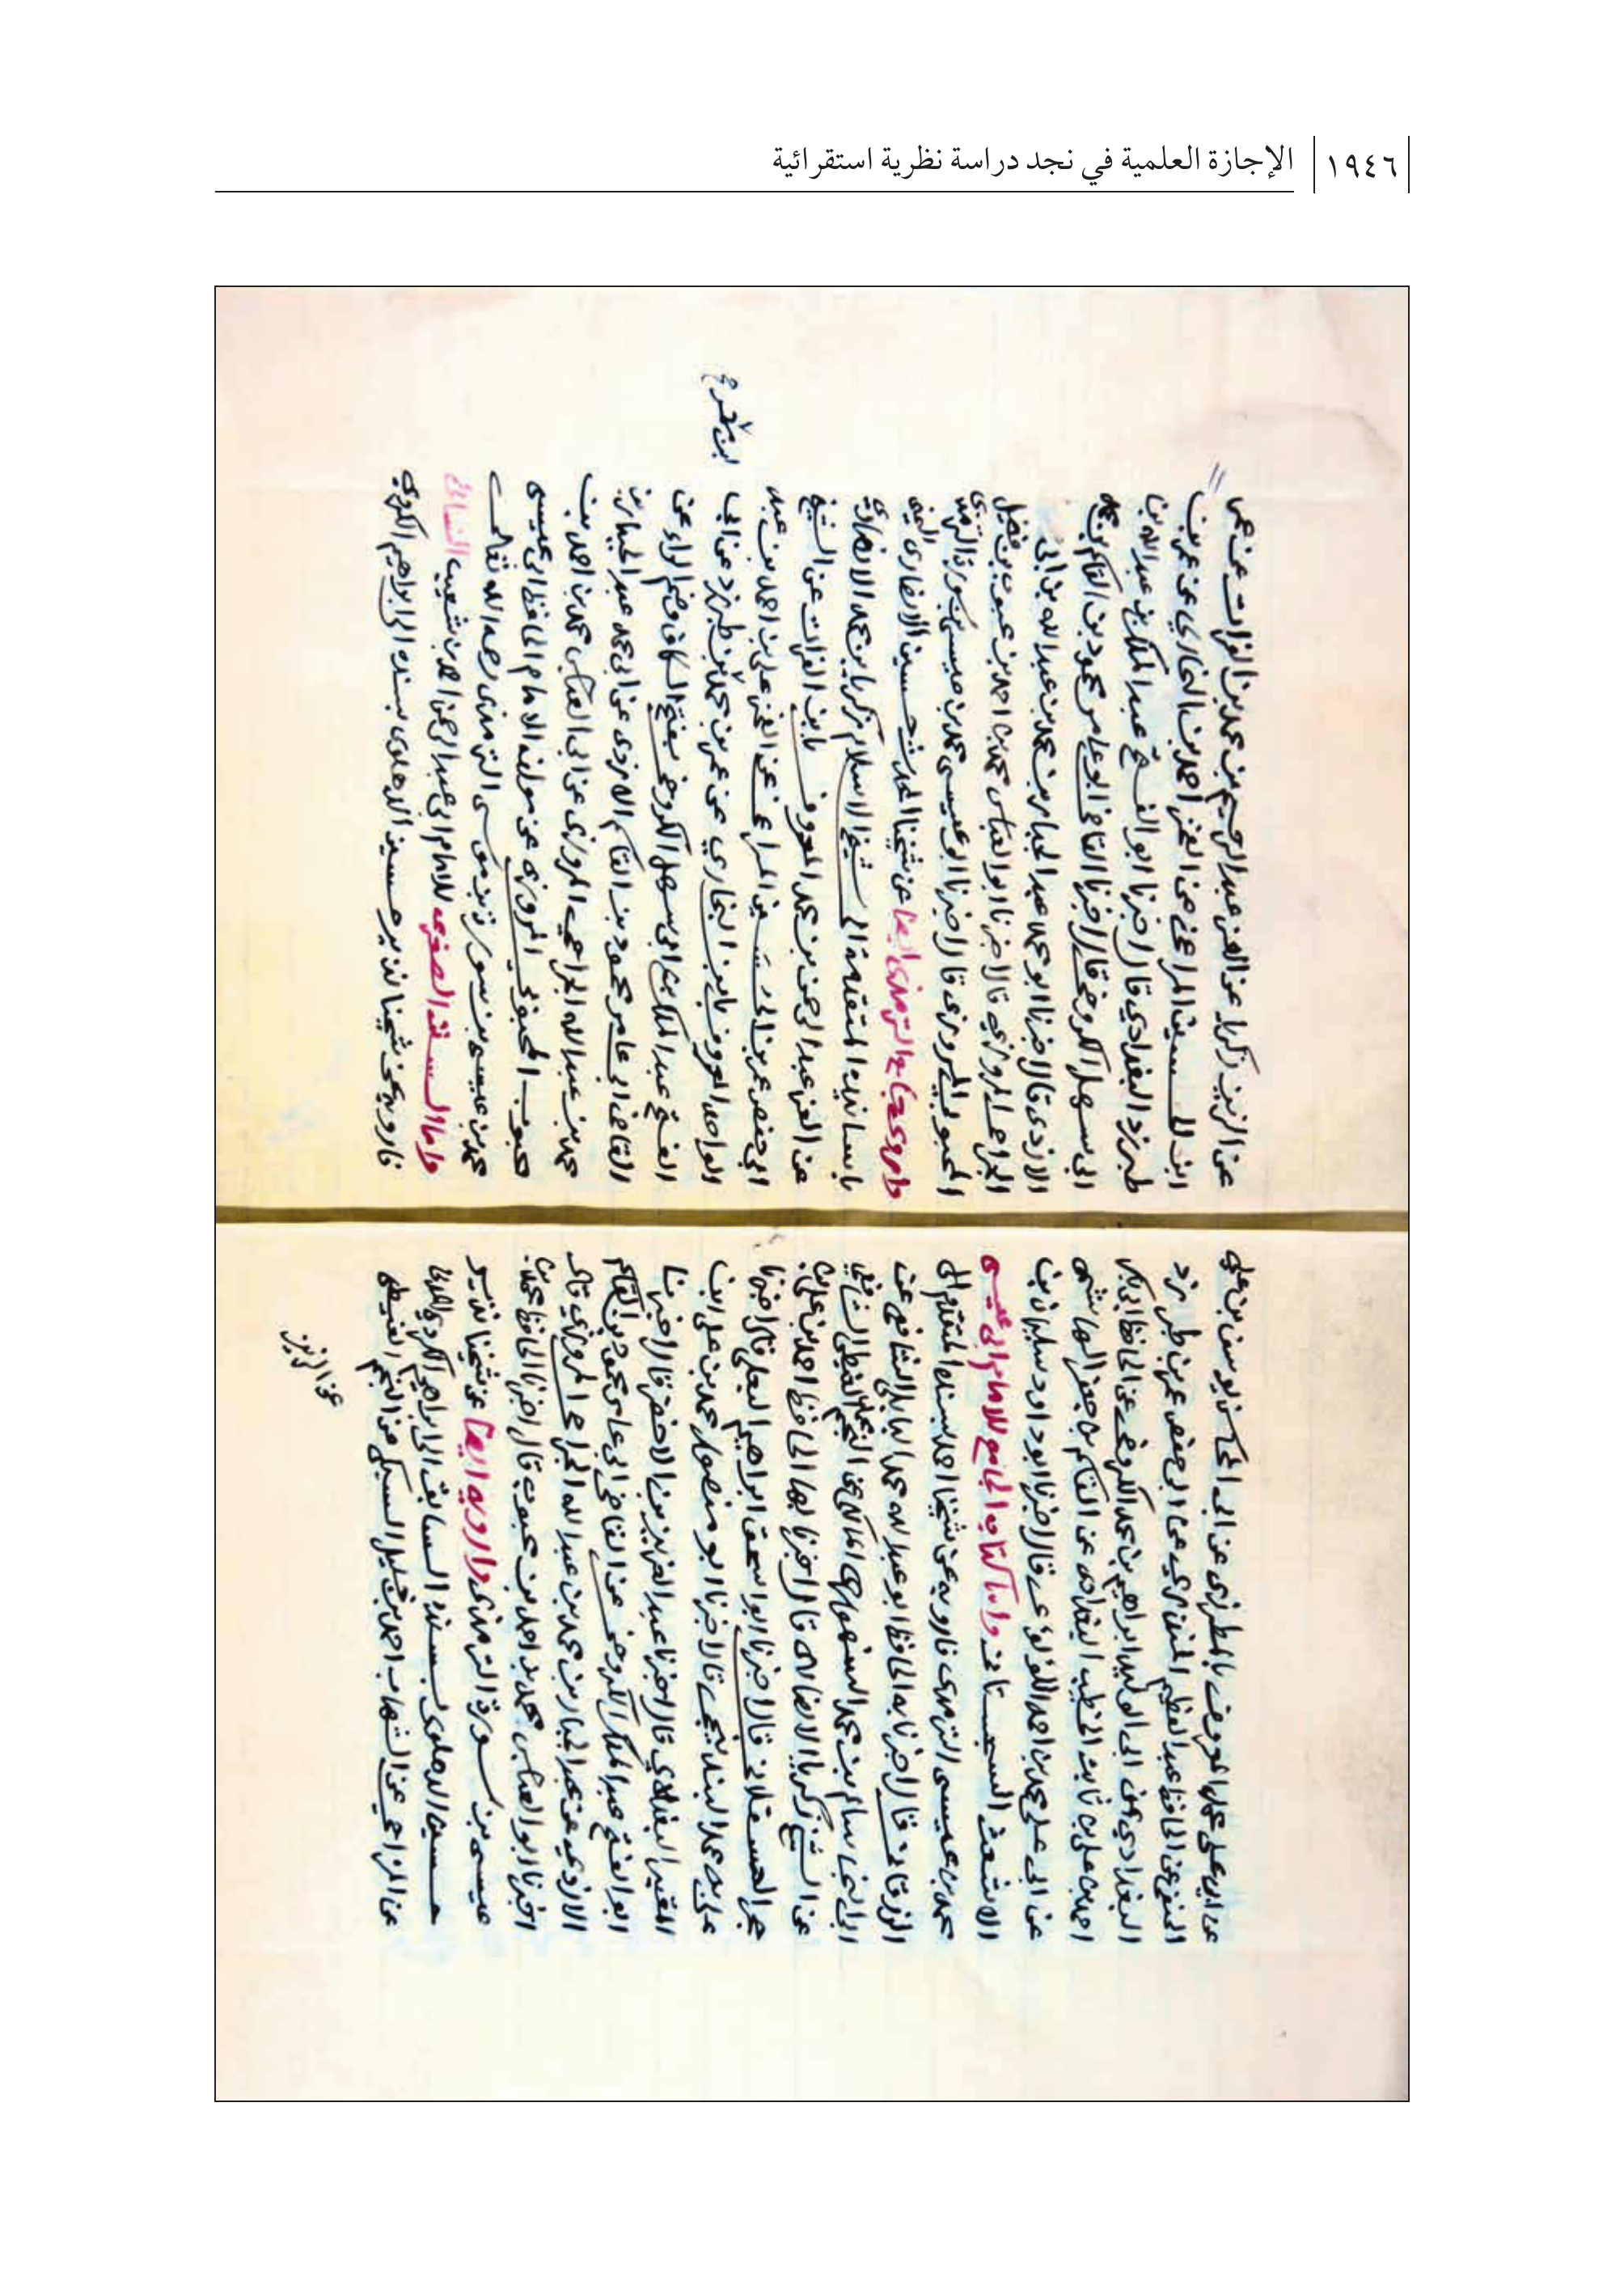 ١٩٤٦
الإجازة العلمية في نجد دراسة نظرية استقرائية
عن ابي علي محمد المعروف بالمطرزي عن ابي المحاسن يوسف بن علي
الحنفي عن الحافظ عبد العظيم المنذري عن ابي حفص عمر بن طبرزد
البغدادي عن ابي الوليد ابراهيم بن محمد الكروخي عن الحافظ ابي بكر
احمد بن علي بن ثابت الخطيب البغدادي عن القاسم بن جعفر الهاشمي
عن ابي علي محمد بن احمد اللؤلؤي قال اخبرنا ابو داود سليمان بن
الاشعث السجستاني واما كتاب الجامع للامام ابي عيسى
محمد بن عيسى الترمذي فارويه عن شيخنا احمد بسنده المتقدم الى
الزرقاني قال اخبرنا به الحافظ ابو عبد الله محمد البابلي الشافعي عن
ابي النجا سالم بن محمد السنهوري المالكي عن النجم الغيطي الشافعي
عن الشيخ زكريا الانصاري قال اخبرنا بها الحافظ احمد بن علي بن
حجر العسقلاني قال اخبرنا ابو اسحق ابراهيم البعلي قال اخبرنا
علي بن محمد البندنيجي قال اخبرنا ابو منصور محمد بن علي ابن
البغدادي قال اخبرنا عبد العزيز بن الاخضر قال اخبرنا
ابو الفتح عبد الملك الكروخي عن القاضي ابي عامر محمود بن القاسم
الازدي عن عبد الجبار بن محمد بن عبد الله الجراحي المروزي قال
اخبرنا ابو العباس محمد بن احمد بن محبوب قال اخبرنا الحافظ محمد بن
عيسى بن سورة الترمذي وارويه ايضا عن شيخنا نذير
حسين الدهلوي بسنده السابق الى ابراهيم الكردي المدني
عن المزاحي عن الشهاب احمد بن خليل السبكي عن النجم الغيطي
عن الزين
عن الزين زكريا عن العز عبد الرحيم بن محمد بن الفرات عن عمر
ابن الحسين المراغي عن الفخر احمد بن البخاري عن عمر بن
طبرزد البغدادي قال اخبرنا ابو الفتح عبد الملك بن عبد الله بن
ابي سهل الكروخي قال اخبرنا القاضي ابو عامر محمود بن القاسم بن محمد
الازدي قال اخبرنا ابو محمد عبد الجبار بن محمد بن عبد الله بن ابي
الجراح المروزي قال اخبرنا ابو العباس محمد بن احمد بن محبوب بن فضيل
المحبوبي المروزي قال اخبرنا ابو عيسى محمد بن عيسى بن سورة الترمذي
واروي جامع الترمذي ايضا عن شيخنا المحدث حسين الانصاري اليمني
باسانيده المتقدمة الى شيخ الاسلام زكريا بن محمد الانصاري
عن العز عبد الرحمن بن محمد المعروف بابن الفرات عن الشيخ
ابي حفص عمر بن الحسين المراغي عن الفخر علي بن احمد بن عبد
الواحد المعروف بابن البخاري عن عمر بن محمد بن طبرزد عن ابي
الفتح عبد الملك بن ابي سهل الكروخي بفتح الكاف وضم الراء عن
القاضي ابي عامر محمود بن القاسم الازدي عن ابي محمد عبد الجبار بن
محمد بن عبد الله الجراحي المروزي عن ابي العباس محمد بن احمد بن
محبوب المحبوبي المروزي عن مولفه الامام الحافظ ابي عيسى
محمد بن عيسى بن سورة بن موسى الترمذي رحمه الله تعالى
واما السنن الصغرى للامام ابي عبد الرحمن احمد بن شعيب النسائي
فارويه عن شيخنا نذير حسين الدهلوي بسنده الى ابراهيم الكردي
ابن معمر